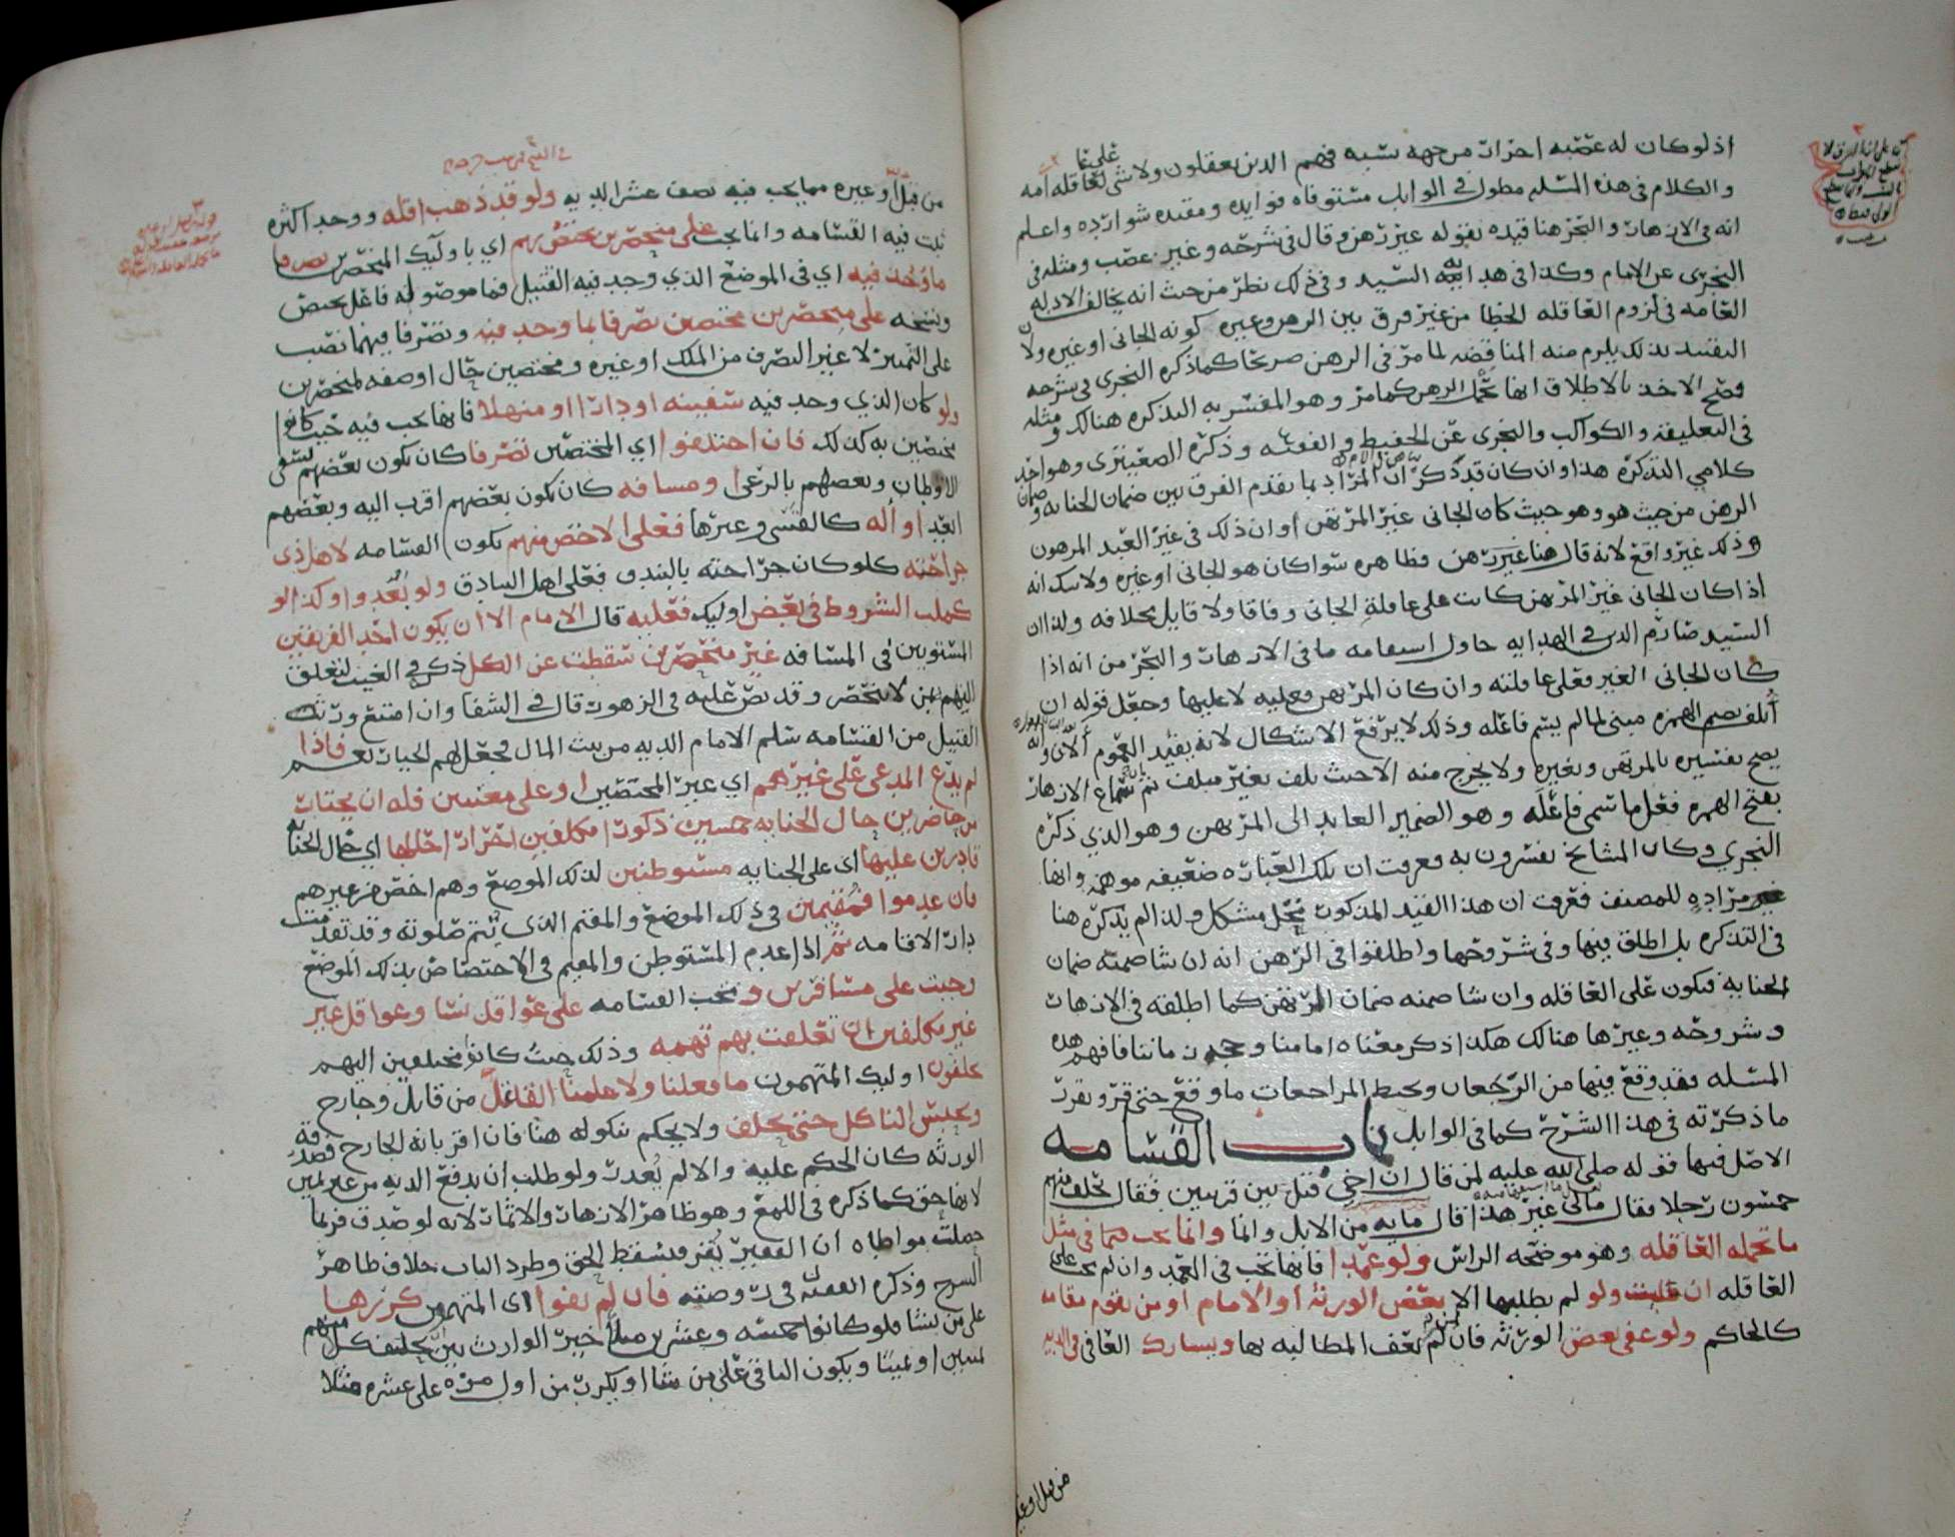 اذ لو كان له عصبه احرار من جهه نسبه فهم الذين يعقلون ولا شي على عاقله امه
والكلام في هذه المسله مطول في الوابل مستوفاه فوايده ومقيده شوارده واعلم
انه في الازهار والبحر هنا قيده بقوله غير رهن وقال في شرحه وغير غصب ومثله في
النجري عن الامام وكذا في هدايه السيد وفي ذلك نظر من حيث انه يخالف الادله
العامه في لزوم العاقله الخطا من غير فرق بين الرهن وغيره كونه الجاني او غيره ولان
التقييد بذلك يلزم منه المناقضه لما مر في الرهن صريحا كما ذكره النجري في شرحه
فصح الاخذ بالاطلاق انها تحمل الرهن كما مر وهو المفسر به التذكره هنالك ومثله
في التعليقه والكواكب والنجري عن الحفيظ والفقيه وذكره الصعيتري وهو احد
كلامي التذكره هذا وان كان قد ذكر ان المراد بما تقدم الفرق بين ضمان الجنايه وضمان
الرهن من حيث هو وهو حيث كان الجاني غير المرتهن او ان ذلك في غير العبد المرهون
وذلك غير واقع لانه قال هنا غير رهن فظاهره سوا كان هو الجاني او غيره ولا شك انه
اذا كان الجاني غير المرتهن كانت على عاقلة الجاني وفاقا ولا قايل بخلافه ولذا ان
السيد صارم الدين في الهدايه حاول استقامه ما في الازهار والبحر من انه اذا
كان الجاني الغير فعلى عاقلته وان كان المرتهن فعليه لا عليها وجعل قوله ان
أتلف بضم الهمزه مبني لما لم يسم فاعله وذلك لا يرفع الاشكال لانه يفيد العموم
يصح تفسيره بالمرتهن وبغيره ولا يخرج منه الا حيث تلف بغير متلف ثم سماع الازهار
بفتح الهمزه فعل ما سمي فاعله وهو الضمير العايد الى المرتهن وهو الذي ذكره
النجري وكان المشايخ يفسرون به فعرفت ان تلك العباره ضعيفه موهمه وانها
غير مراده للمصنف فعرفت ان هذا القيد المذكور محل مشكل ولذا لم يذكره هنا
في التذكره بل اطلق فيها وفي شروحها واطلقوا في الرهن انه ان شا ضمنه ضمان
الجنايه فيكون على العاقله وان شا ضمنه ضمان الرهن كما اطلقه في الازهار
وشروحه وغيرها هنالك هكذا ذكر معناه امامنا فافهم هذه
المسله فقد وقع فيها من الرجعان ومحيط المراجعات ما وقع حتى قر وتقرر
ما ذكرته في هذا الشرح كما في الوابل باب القسامه
الاصل فيها قوله صلى الله عليه لمن قال ان اخي قتل بين قريتين فقال تحلف منهم
خمسون رجلا فقال مالي غير هذا قال مايه من الابل وانما وانما يجب فيما في مثل
ما تحمله العاقله وهو موضحه الراس ولو عمدا فانها تجب في العمد وان لم تجب على
العاقله ان طلبت ولو لم يطلبها الا بعض الورثه او الامام او من يقوم مقامه
كالحاكم ولو عفى بعض الورثه فان لمن لم يعف المطالبه بها ويشارك العافي في الديه
من قبل او غيره
من قبل او غيره مما يجب فيه نصف عشر الديه ولو قد ذهب اقله ووجد اكثره
ثبت فيه القسامه وانما يجب على منحصرين مختص بهم اي باوليك المنحصرين تصرفا
ما وجد فيه اي في الموضع الذي وجد فيه القتيل فما موصوله فاعل مختص
ونسخه على منحصرين مختصين تصرفا بما وجد فيه وتصرفا فيهما نصب
على التمييز لا غير التصرف من الملك او غيره ومختصين حال او صفه لمنحصرين
ولو كان الذي وجد فيه سفينه او دارا او منهلا فانها تجب فيه حيث كانوا
مختصين به كذلك فان اختلفوا اي المختصين تصرفا كان يكون بعضهم لسقي
الاوطان وبعضهم بالرعي او مسافه كان يكون بعضهم اقرب اليه وبعضهم
ابعد او اله كالقسي وغيرها فعلى الاخص منهم تكون القسامه لاهل ذي
جراحته كلو كان جراحته بالبندق فعلى اهل البنادق ولو بعدوا وكذا لو
كملت الشروط في بعض اوليك فعليه قال الامام الا ان يكون احد الفريقين
المستويين في المسافه غير منحصرين سقطت عن الكل ذكره في الغيث لتعلق
اليهم بمن لا ينحصر وقد نص عليه في الزهور قال في الشفا وان امتنع ورثة
القتيل من القسامه سلم الامام الديه من بيت المال فجعل لهم الخيار نعم فاذا
لم يدع المدعي على غيرهم اي غير المختصين او على معينين فله ان يختار
من حاضرين حال الجنايه خمسين ذكورا مكلفين احرارا حالها اي حال الجنايه
قادرين عليها اي على الجنايه مستوطنين لذلك الموضع وهم اخص من غيرهم
فان عدموا فمقيمين في ذلك الموضع والمقيم الذي يتم صلوته وقد تقدمت
دار الاقامه ثم اذا عدم المستوطن والمقيم في الاختصاص بذلك الموضع
وجبت على مسافرين وتجب القسامه على عواقل نسا وعواقل غير
غير مكلفين ان تعلقت بهم تهمه وذلك حيث كانوا مختلفين اليهم
يحلفون اوليك المتهمون ما فعلنا ولا علمنا القاتل من قاتل وجارح
ويحبس الناكل حتى يحلف ولا يحكم بنكوله هنا فان اقر بانه الجارح فصدقه
الورثه كان الحكم عليه والا لم يعدت ولو طلب ان يدفع الديه من غير يمين
لانها حق كما ذكره في اللمع وهو ظاهر الازهار والاثمار لانه لو صدق فربما
حملت مواطاه ان الفقير يقر فيسقط الحق وطرد الباب خلاف ظاهر
الشرح وذكره الفقيه ف في روضته فان لم يفوا اي المتهمون كررها
على من شا فلو كانوا خمسه وعشرين مثلا خير الوارث بين تحليف كل منهم
يمينين او يمينا ويكون الباقي على من شا او يكررت من اول مره على عشره مثلا